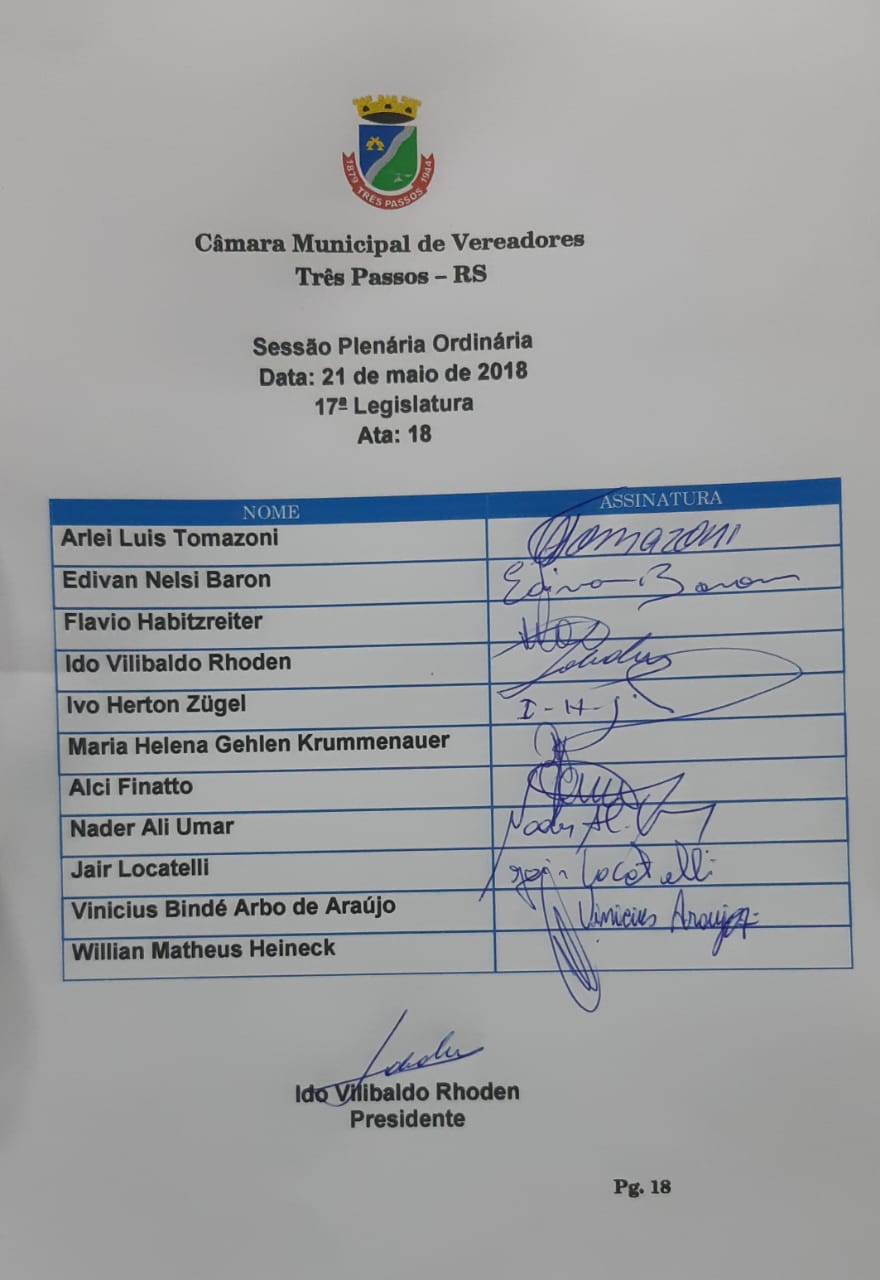 1879 TRÊS PASSOS 1944
Câmara Municipal de Vereadores
Três Passos – RS
Sessão Plenária Ordinária
Data: 21 de maio de 2018
17ª Legislatura
Ata: 18
NOME ASSINATURA
Arlei Luis Tomazoni Tomazoni
Edivan Nelsi Baron Edivan Baron
Flavio Habitzreiter
Ido Vilibaldo Rhoden
Ivo Herton Zügel I-H-
Maria Helena Gehlen Krummenauer
Alci Finatto
Nader Ali Umar Nader Al.
Jair Locatelli Jair Locatelli
Vinicius Bindé Arbo de Araújo Vinicius Araujo
Willian Matheus Heineck
Ido Vilibaldo Rhoden
Presidente
Pg. 18